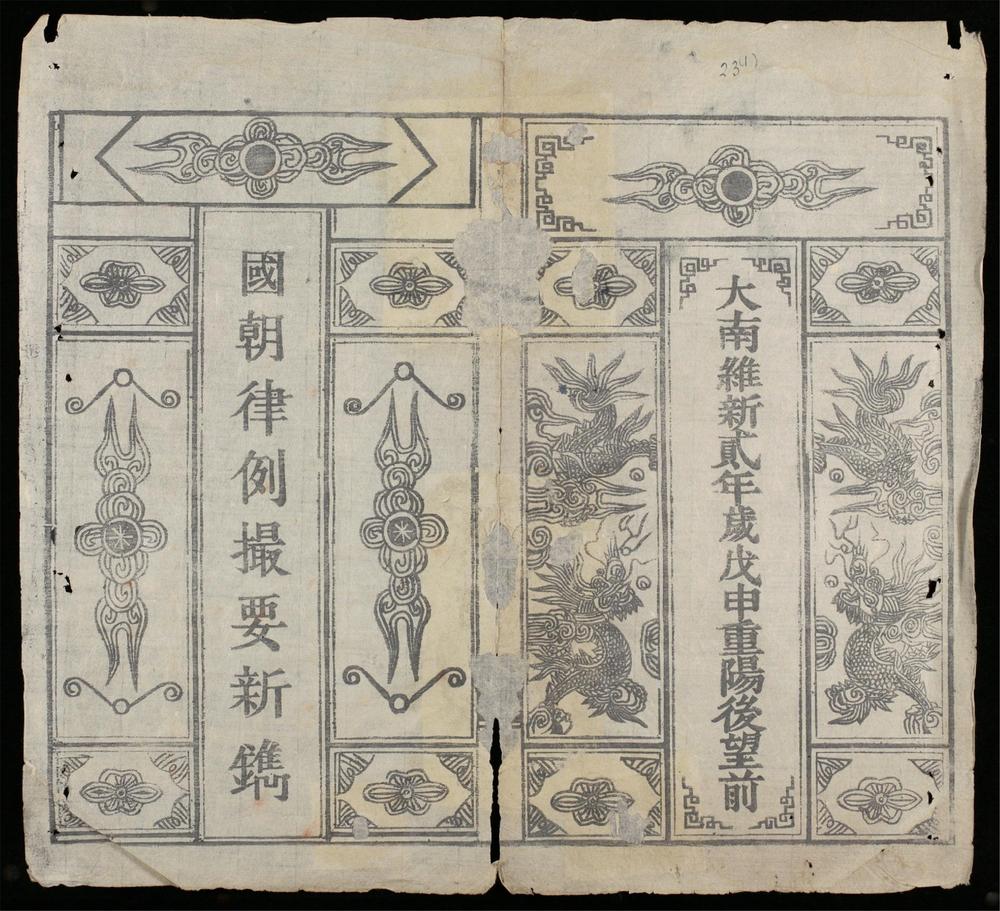 23(1)
大南維新貳年歲戊申重陽後望前
國朝律例撮要新鐫